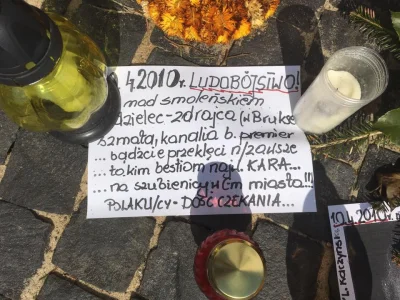 4.2010r. LUDOBÓJSTWO!
nad smoleńskiem
dzielec-zdrajca (w Brukse
szmata, kanalia b. premier
... bądźcie przeklęci n/zawsze
... takim bestiom najw. KARA...
... na szubienicy w cm miasta!!!
POLAKU/CY - DOŚĆ CZEKANIA...
10.4.2010r.
L. Kaczyńsk